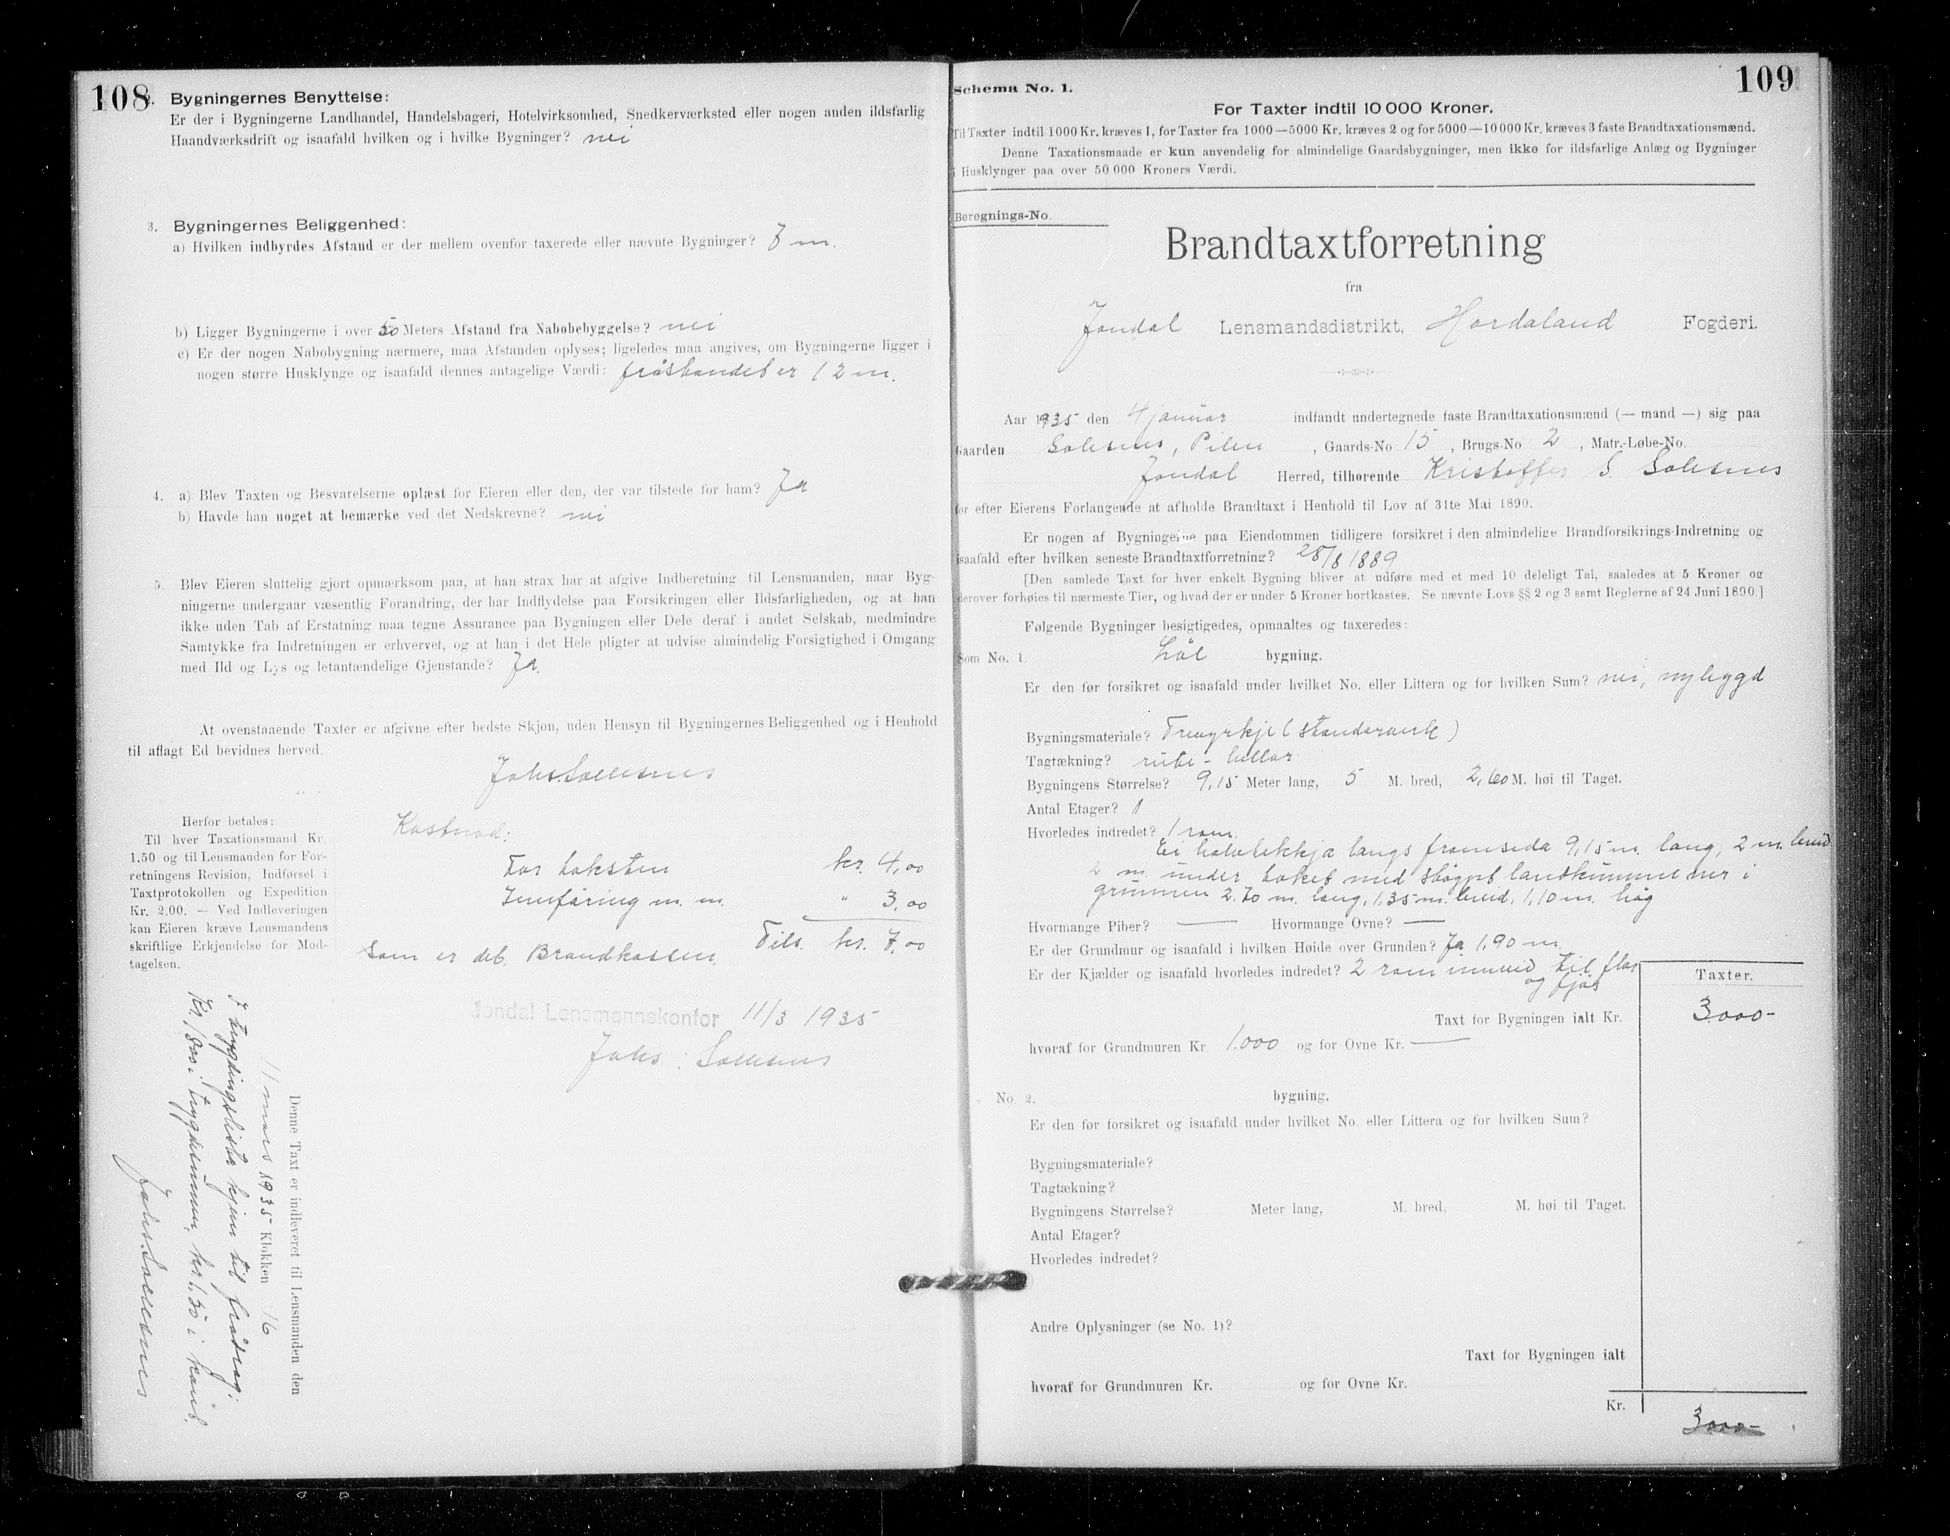 108
2. Bygningernes Benyttelse:
Er der i Bygningerne Landhandel, Handelsbageri, Hotelvirksomhed, Snedkerværksted eller nogen anden ildsfarlig
Haandværksdrift og isaafald hvilken og i hvilke Bygninger? nei
3. Bygningernes Beliggenhed:
a) Hvilken indbyrdes Afstand er der mellem ovenfor taxerede eller nævnte Bygninger? 7 m.
b) Ligger Bygningerne i over 50 Meters Afstand fra Nabobebyggelse? nei
c) Er der nogen Nabobygning nærmere, maa Afstanden oplyses; ligeledes maa angives, om Bygningerne ligger i
nogen større Husklynge og isaafald dennes antagelige Værdi: fråstandet er 12 m.
4. a) Blev Taxten og Besvarelserne oplæst for Eieren eller den, der var tilstede for ham? Ja
b) Havde han noget at bemærke ved det Nedskrevne? nei
5. Blev Eieren sluttelig gjort opmærksom paa, at han strax har at afgive Indberetning til Lensmanden, naar Byg-
ningerne undergaar væsentlig Forandring, der har Indflydelse paa Forsikringen eller Ildsfarligheden, og at han
ikke uden Tab af Erstatning maa tegne Assurance paa Bygningen eller Dele deraf i andet Selskab, medmindre
Samtykke fra Indretningen er erhvervet, og at han i det Hele pligter at udvise almindelig Forsigtighed i Omgang
med Ild og Lys og letantændelige Gjenstande? Ja.
At ovenstaaende Taxter er afgivne efter bedste Skjøn, uden Hensyn til Bygningernes Beliggenhed og i Henhold
til aflagt Ed bevidnes herved.
Johs. Solesnes
Herfor betales:
Til hver Taxationsmand Kr.
1.50 og til Lensmanden for For-
retningens Revision, Indførsel i
Taxtprotokollen og Expedition
Kr. 2,00. — Ved Indleveringen
kan Eieren kræve Lensmandens
skriftlige Erkjendelse for Mod-
tagelsen.
Kostnad:
For taksten kr. 4,00
Innføring m. m. " 3,00
Tils. kr. 7,00
Som er bet. Brandkassen.
Jondal Lensmannskontor 11/3 1935
Johs. Solesnes
Denne Taxt er indleveret til Lensmanden den
11 mars 1935 Klokken 16
I trygdingslista kjem til frådrag:
Kr. 1800 i trygdesummen, kr. 1,30 i kont.
Johs. Solesnes
109
Schema No. 1.
For Taxter indtil 10 000 Kroner.
Til Taxter indtil 1000 Kr. kræves 1, for Taxter fra 1000—5000 Kr. kræves 2 og for 5000—10 000 Kr. kræves 3 faste Brandtaxationsmænd.
Denne Taxationsmaade er kun anvendelig for almindelige Gaardsbygninger, men ikke for ildsfarlige Anlæg og Bygninger
i Husklynger paa over 50 000 Kroners Værdi.
Beregnings-No.
Brandtaxtforretning
fra
Jondal Lensmandsdistrikt, Hordaland Fogderi.
Aar 1935 den 4 januar indfandt undertegnede faste Brandtaxationsmænd (— mand —) sig paa
Gaarden Solesnes, Pilen, Gaards-No 15, Brugs-No 2, Matr.-Løbe-No.
Jondal Herred, tilhørende Kristoffer S. Solesnes
for efter Eierens Forlangende at afholde Brandtaxt i Henhold til Lov af 31te Mai 1890.
Er nogen af Bygningerne paa Eiendommen tidligere forsikret i den almindelige Brandforsikrings-Indretning og
isaafald efter hvilken seneste Brandtaxtforretning? 28/8 1889
[Den samlede Taxt for hver enkelt Bygning bliver at udføre med et med 10 deleligt Tal, saaledes at 5 Kroner og
derover forhøies til nærmeste Tier, og hvad der er under 5 Kroner bortkastes. Se nævnte Lovs §§ 2 og 3 samt Reglerne af 24 Juni 1890.]
Følgende Bygninger besigtigedes, opmaaltes og taxeredes:
Som No. 1. Løe bygning.
Er den før forsikret og isaafald under hvilket No. eller Littera og for hvilken Sum? nei, nybygd
Bygningsmateriale? Treyrkje (standarverk)
Tagtækning? rute-hellor
Bygningens Størrelse? 9,15 Meter lang, 5 M. bred, 2,60 M. høi til Taget.
Antal Etager? 1
Hvorledes indredet? 1 rom.
Ei halvtekkja langs framsida 9,15 m. lang, 2 m. breid
2 m. under taket med støypt landkumme ner i
grunnen 2.70 m. lang, 1,35 m. breid, 1,10 m. høg
Hvormange Piber? — Hvormange Ovne? —
Er der Grundmur og isaafald i hvilken Høide over Grunden? Ja 1,90 m.
Er der Kjælder og isaafald hvorledes indredet? 2 rom innreid til flor
og fjøs
Taxter.
Taxt for Bygningen ialt Kr. 3000-
hvoraf for Grundmuren Kr. 1.000 og for Ovne Kr. —
No. 2. bygning.
Er den før forsikret og isaafald under hvilket No. eller Littera og for hvilken Sum?
Bygningsmateriale?
Tagtækning?
Bygningens Størrelse? Meter lang, M. bred, M. høi til Taget.
Antal Etager?
Hvorledes indredet?
Andre Oplysninger (se No. 1)?
Taxt for Bygningen ialt
hvoraf for Grundmuren Kr. og for Ovne Kr.
Kr. 3000-